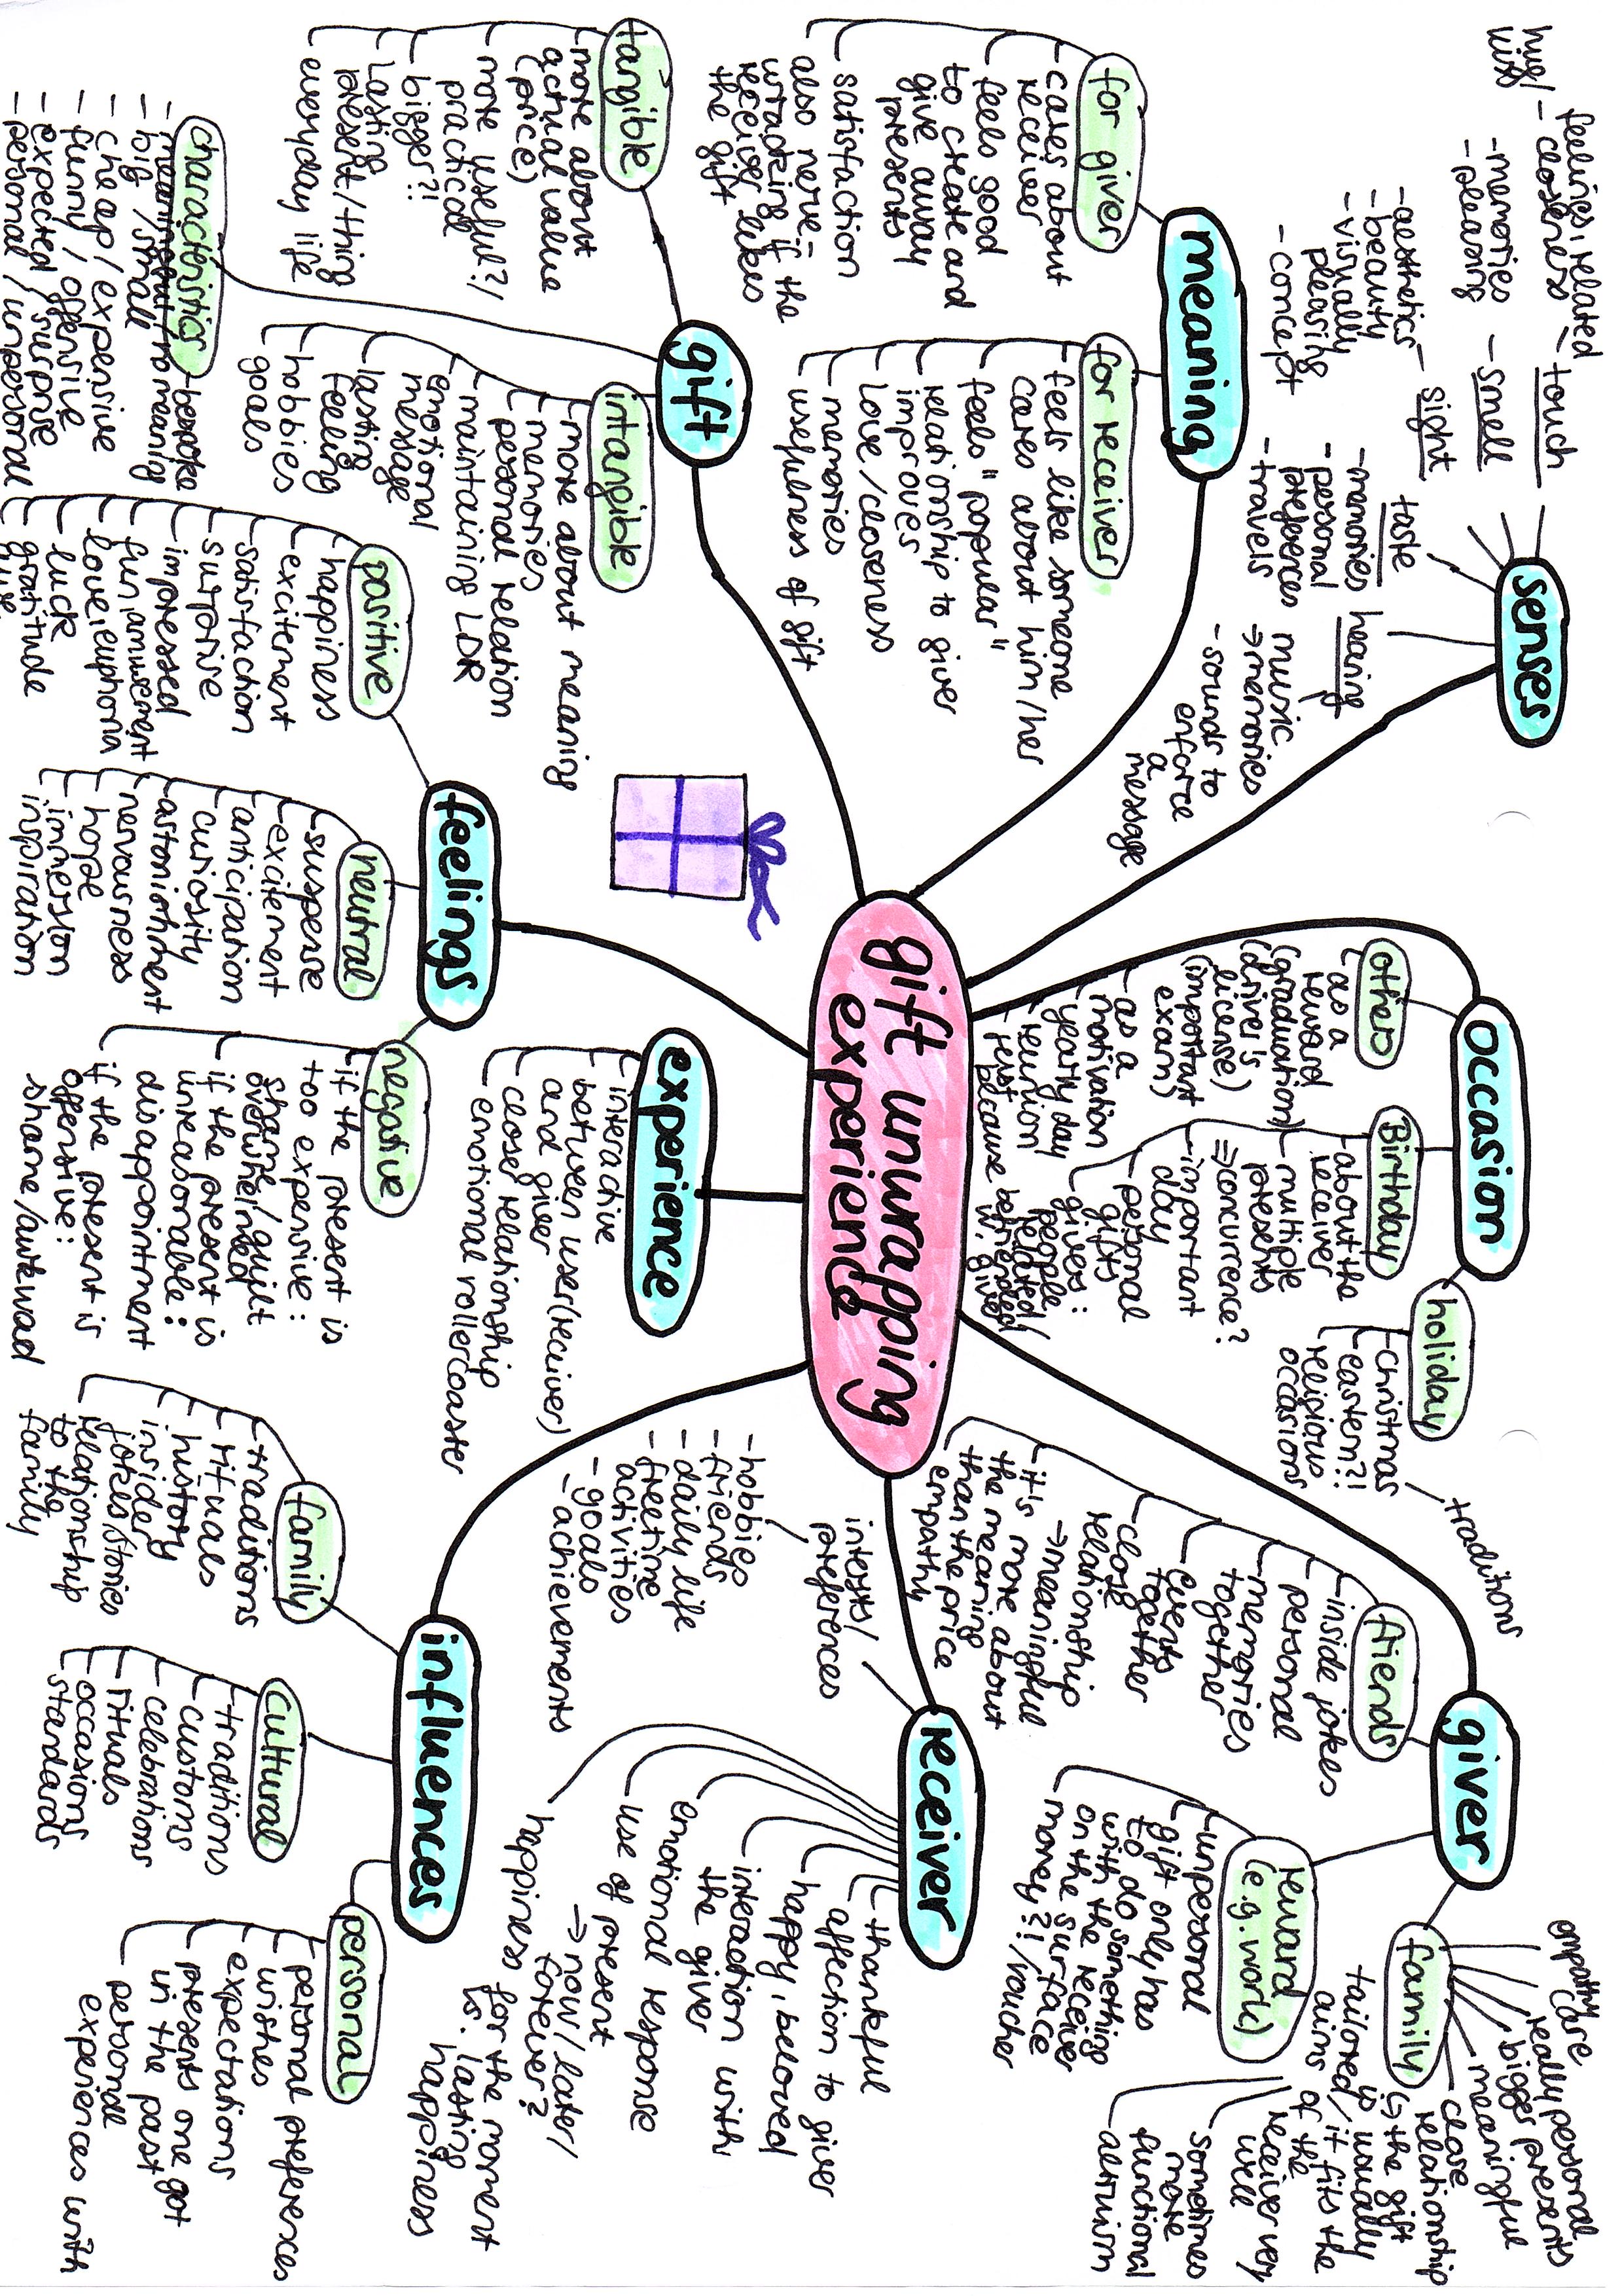 gift unwrapping
experience
senses
touch
feelings, related
- closeness
hug/
kiss
smell
- memories
- pleasing
sight
- aesthetics
- beauty
- visually
pleasing
- concept
taste
- memories
- personal
preferences
- travels
hearing
music
→ memories
- sounds to
enforce
a
message
meaning
for giver
cares about
receiver
feels good
to create and
give away
presents
satisfaction
also nerve-
wracking if the
receiver likes
the gift
for receiver
feels like someone
cares about him/her
feels "popular"
relationship to giver
improves
love/closeness
memories
usefulness of gift
gift
tangible
more about
actual value
(price)
more useful?/
practical
bigger?!
lasting
present/thing
everyday life
intangible
more about meaning
memories
personal relation
maintaining LDR
emotional
message
lasting
feeling
hobbies
goals
characteristics
- bespoke
- big/small
- cheap/expensive
- funny/offensive
- expected/surprise
- personal/unpersonal
feelings
positive
happiness
excitement
satisfaction
surprise
impressed
fun, amusement
love, euphoria
luck
gratitude
neutral
suspense
excitement
anticipation
curiosity
astonishment
nervousness
hope
immersion
inspiration
negative
if the present is
too expensive:
shame/guilt
overwhelmed
if the present is
unreasonable:
disappointment
if the present is
offensive:
shame/awkward
experience
interactive
between user(receiver)
and giver
closer relationship
emotional rollercoaster
occasion
other
as a
reward
(graduation)
(driver's
license)
(important
exam)
as a
motivation
yearly day
reunion
just
because
Birthday
about the
receiver
multiple
presents
⇒ concurrence?
important
day
personal
gifts
gives:
people
related/
befriended
w. giver
holiday
Christmas
eastern?!
religious
occasions
traditions
giver
friends
inside jokes
personal
memories
together
events
together
close
relationship
→ meaningful
it is more about
the meaning
than the price
empathy
reward
(e.g. work)
unpersonal
gift only has
to do something
with the receiver
on the surface
money?!/voucher
family
empathy
care
really personal
bigger presents
meaningful
close
relationship
↳ the gift
is usually
tailored/it fits the
aims of the
receiver very
well
sometimes
more
functional
altruism
receiver
interests/
preferences
- hobbies
- friends
- daily life
- freetime
activities
- goals
- achievements
thankful
affection to giver
happy, beloved
interaction with
the giver
emotional response
use of present
→ now/later/
forever?
happiness for the moment
vs. lasting
happiness
influences
family
traditions
rituals
history
insider
jokes/stories
relationship
to the
family
cultural
traditions
customs
celebrations
rituals
occasions
standards
personal
personal preferences
wishes
expectations
presents one got
in the past
personal
experiences with